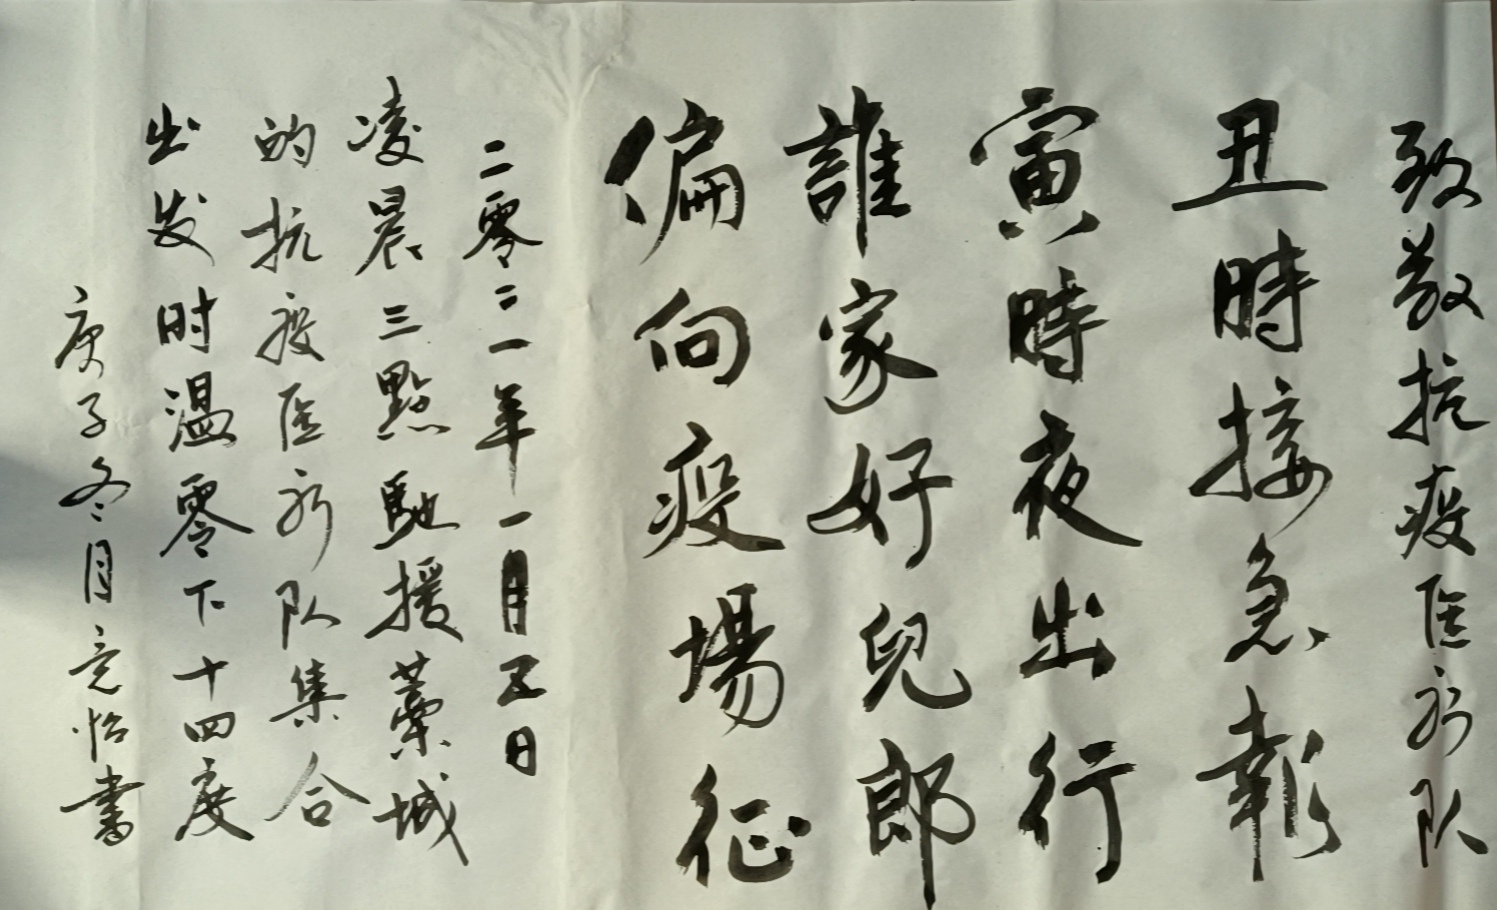 致敬抗疫医疗队
丑時接急報
寅時夜出行
誰家好兒郎
偏向疫場征
二零二一年一月五日
凌晨三點馳援藁城
的抗疫医疗队集合
出发时温零下十四度
庚子冬月竞怡書